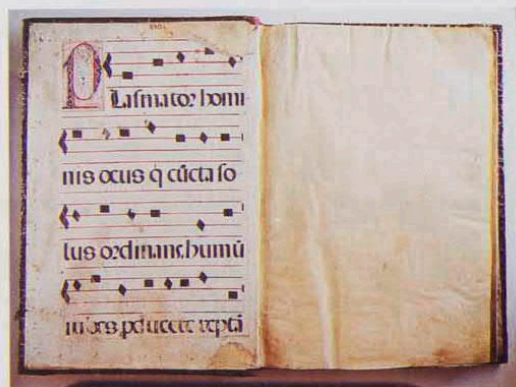 Plasmator homi
nis deus q̇ cūcta so
lus ordinans.humū
iubes.pducere reptā